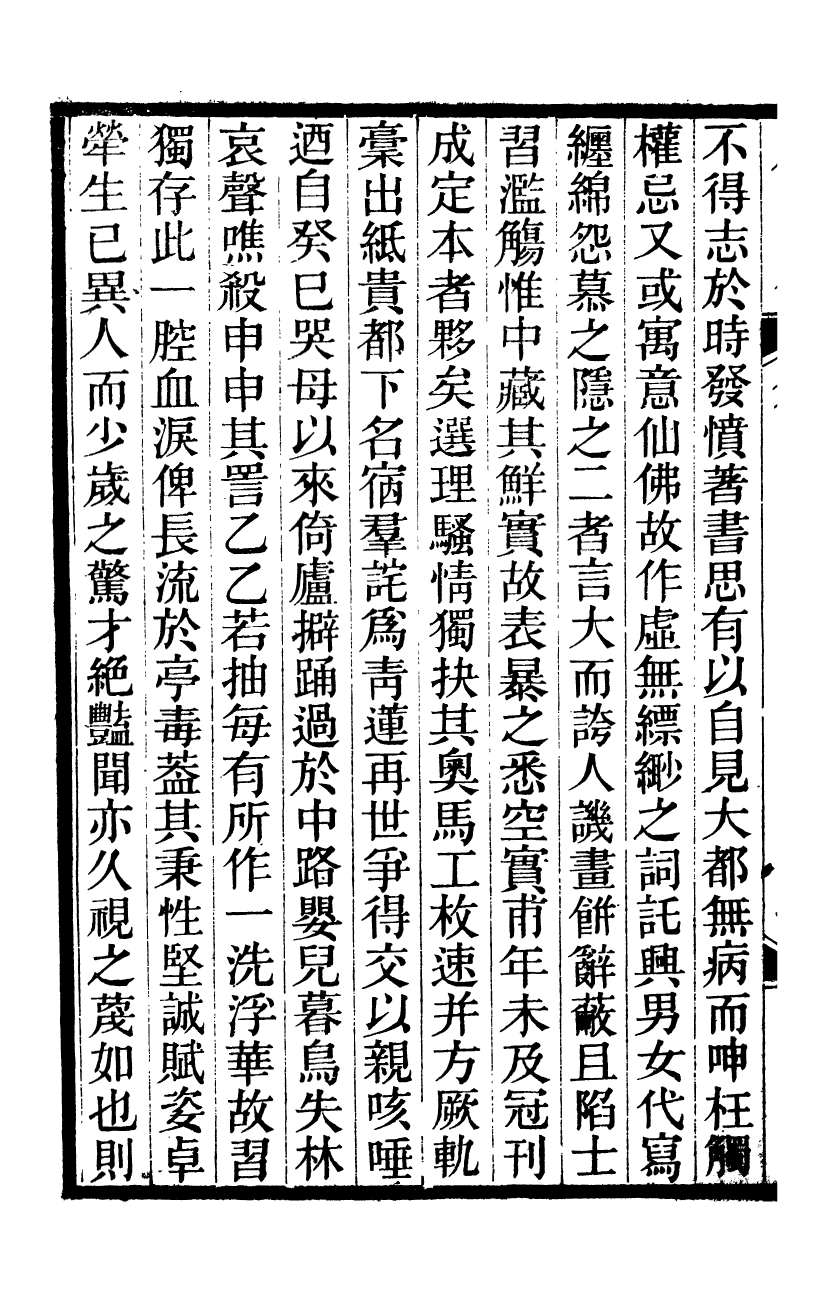 不得志於時發憤著書思有以自見大都無病而呻枉觸
權忌又或寓意仙佛故作虛無縹緲之詞託興男女代寫
纏綿怨慕之隱之二者言大而誇人譏畫餅辭蔽且陷士
習濫觴惟中藏其鮮實故表暴之悉空實甫年未及冠刊
成定本者夥矣選理騷情獨抉其奧馬工枚速并方厥軌
稾出紙貴都下名宿羣詫爲靑蓮再世爭得交以親咳唾
迺自癸巳哭母以來倚廬擗踊過於中路嬰兒暮鳥失林
哀聲噍殺申申其詈乙乙若抽每有所作一洗浮華故習
獨存此一腔血淚俾長流於亭毒葢其秉性堅誠賦姿卓
犖生已異人而少歲之驚才絶豔聞亦久視之蔑如也則